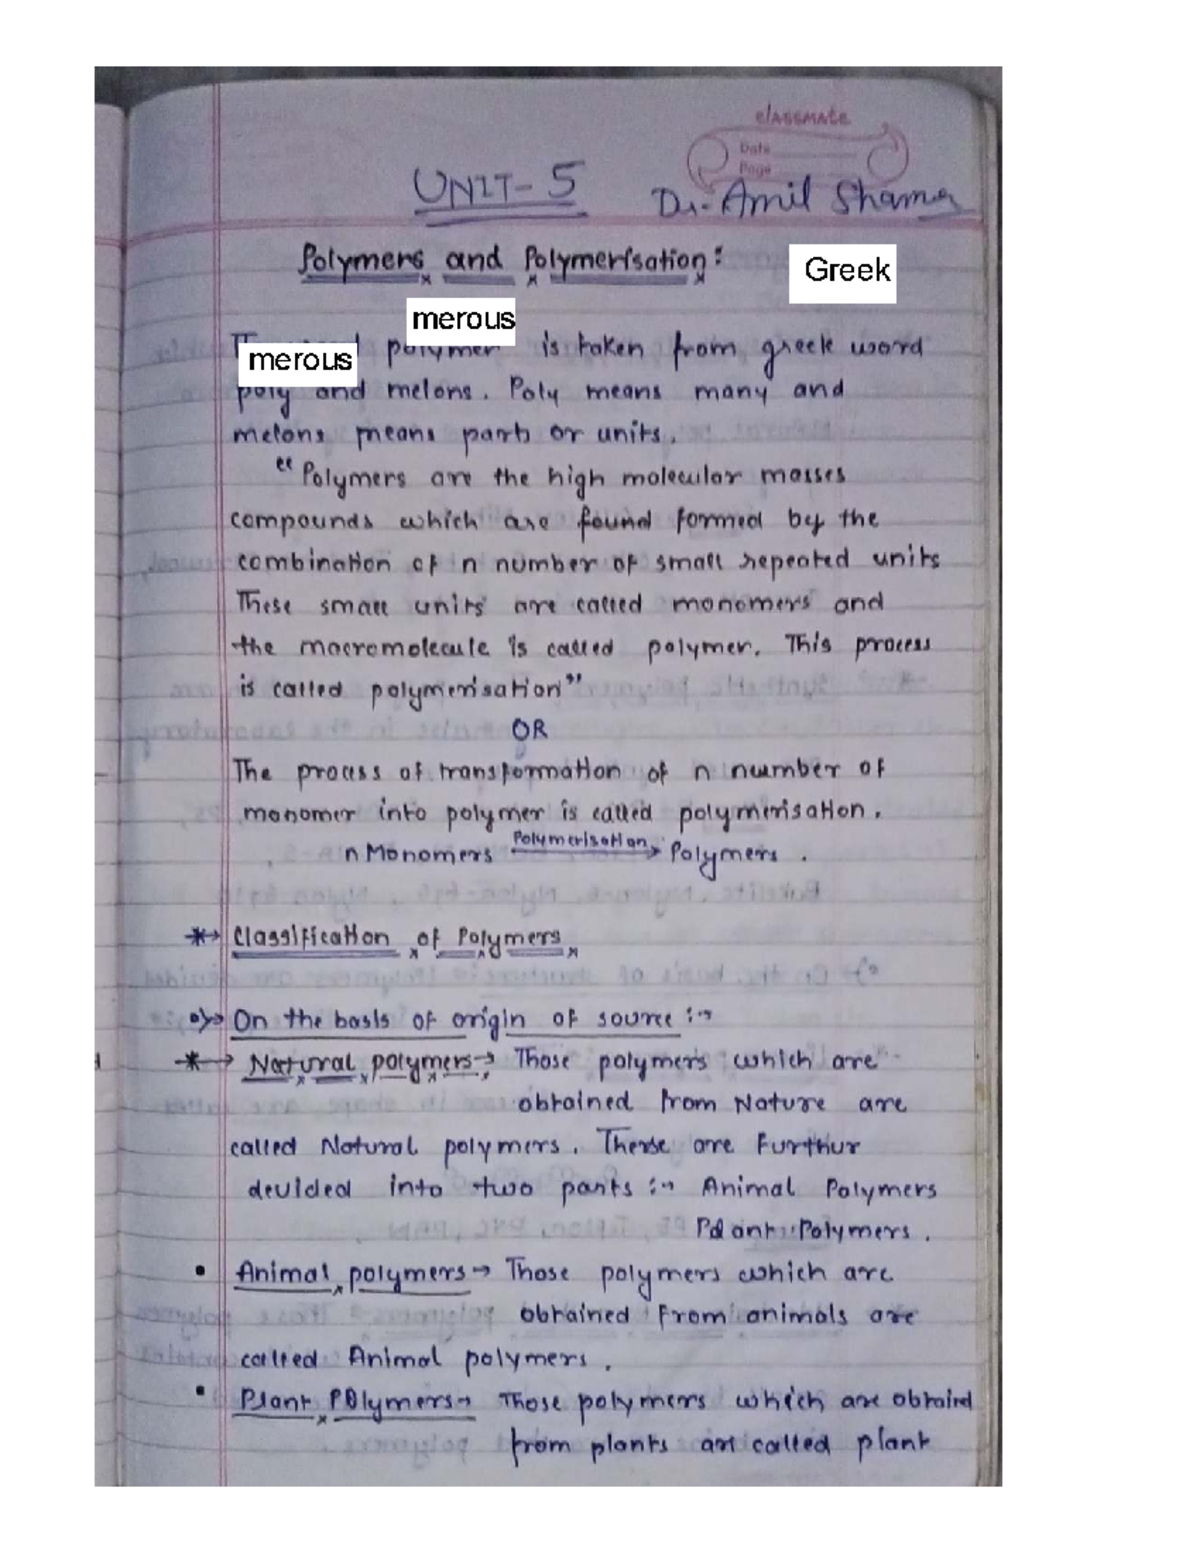 classmate
Date
Page
UNIT-5 Dr. Amil Sharma
Polymers and Polymerisation:
Greek
merous
polymer is taken from greek word
merous
poly and melons. Poly means many and
melons means parts or units.
"Polymers are the high molecular masses
compounds which are found formed by the
combination of n number of small repeated units
These small units are called monomers and
the macromolecule is called polymer. This process
is called polymerisation"
OR
The process of transformation of n number of
monomer into polymer is called polymerisation.
n Monomers Polymerisation → Polymers.
*→ Classification of Polymers
On the basis of origin of source :→
*→ Natural polymers → Those polymers which are
obtained from Nature are
called Natural polymers. These are Furthur
devided into two parts :→ Animal Polymers
Plant Polymers.
• Animal polymers → Those polymers which are
obtained from animals are
called Animal polymers.
• Plant Polymers → Those polymers which are obtaind
from plants are called plant